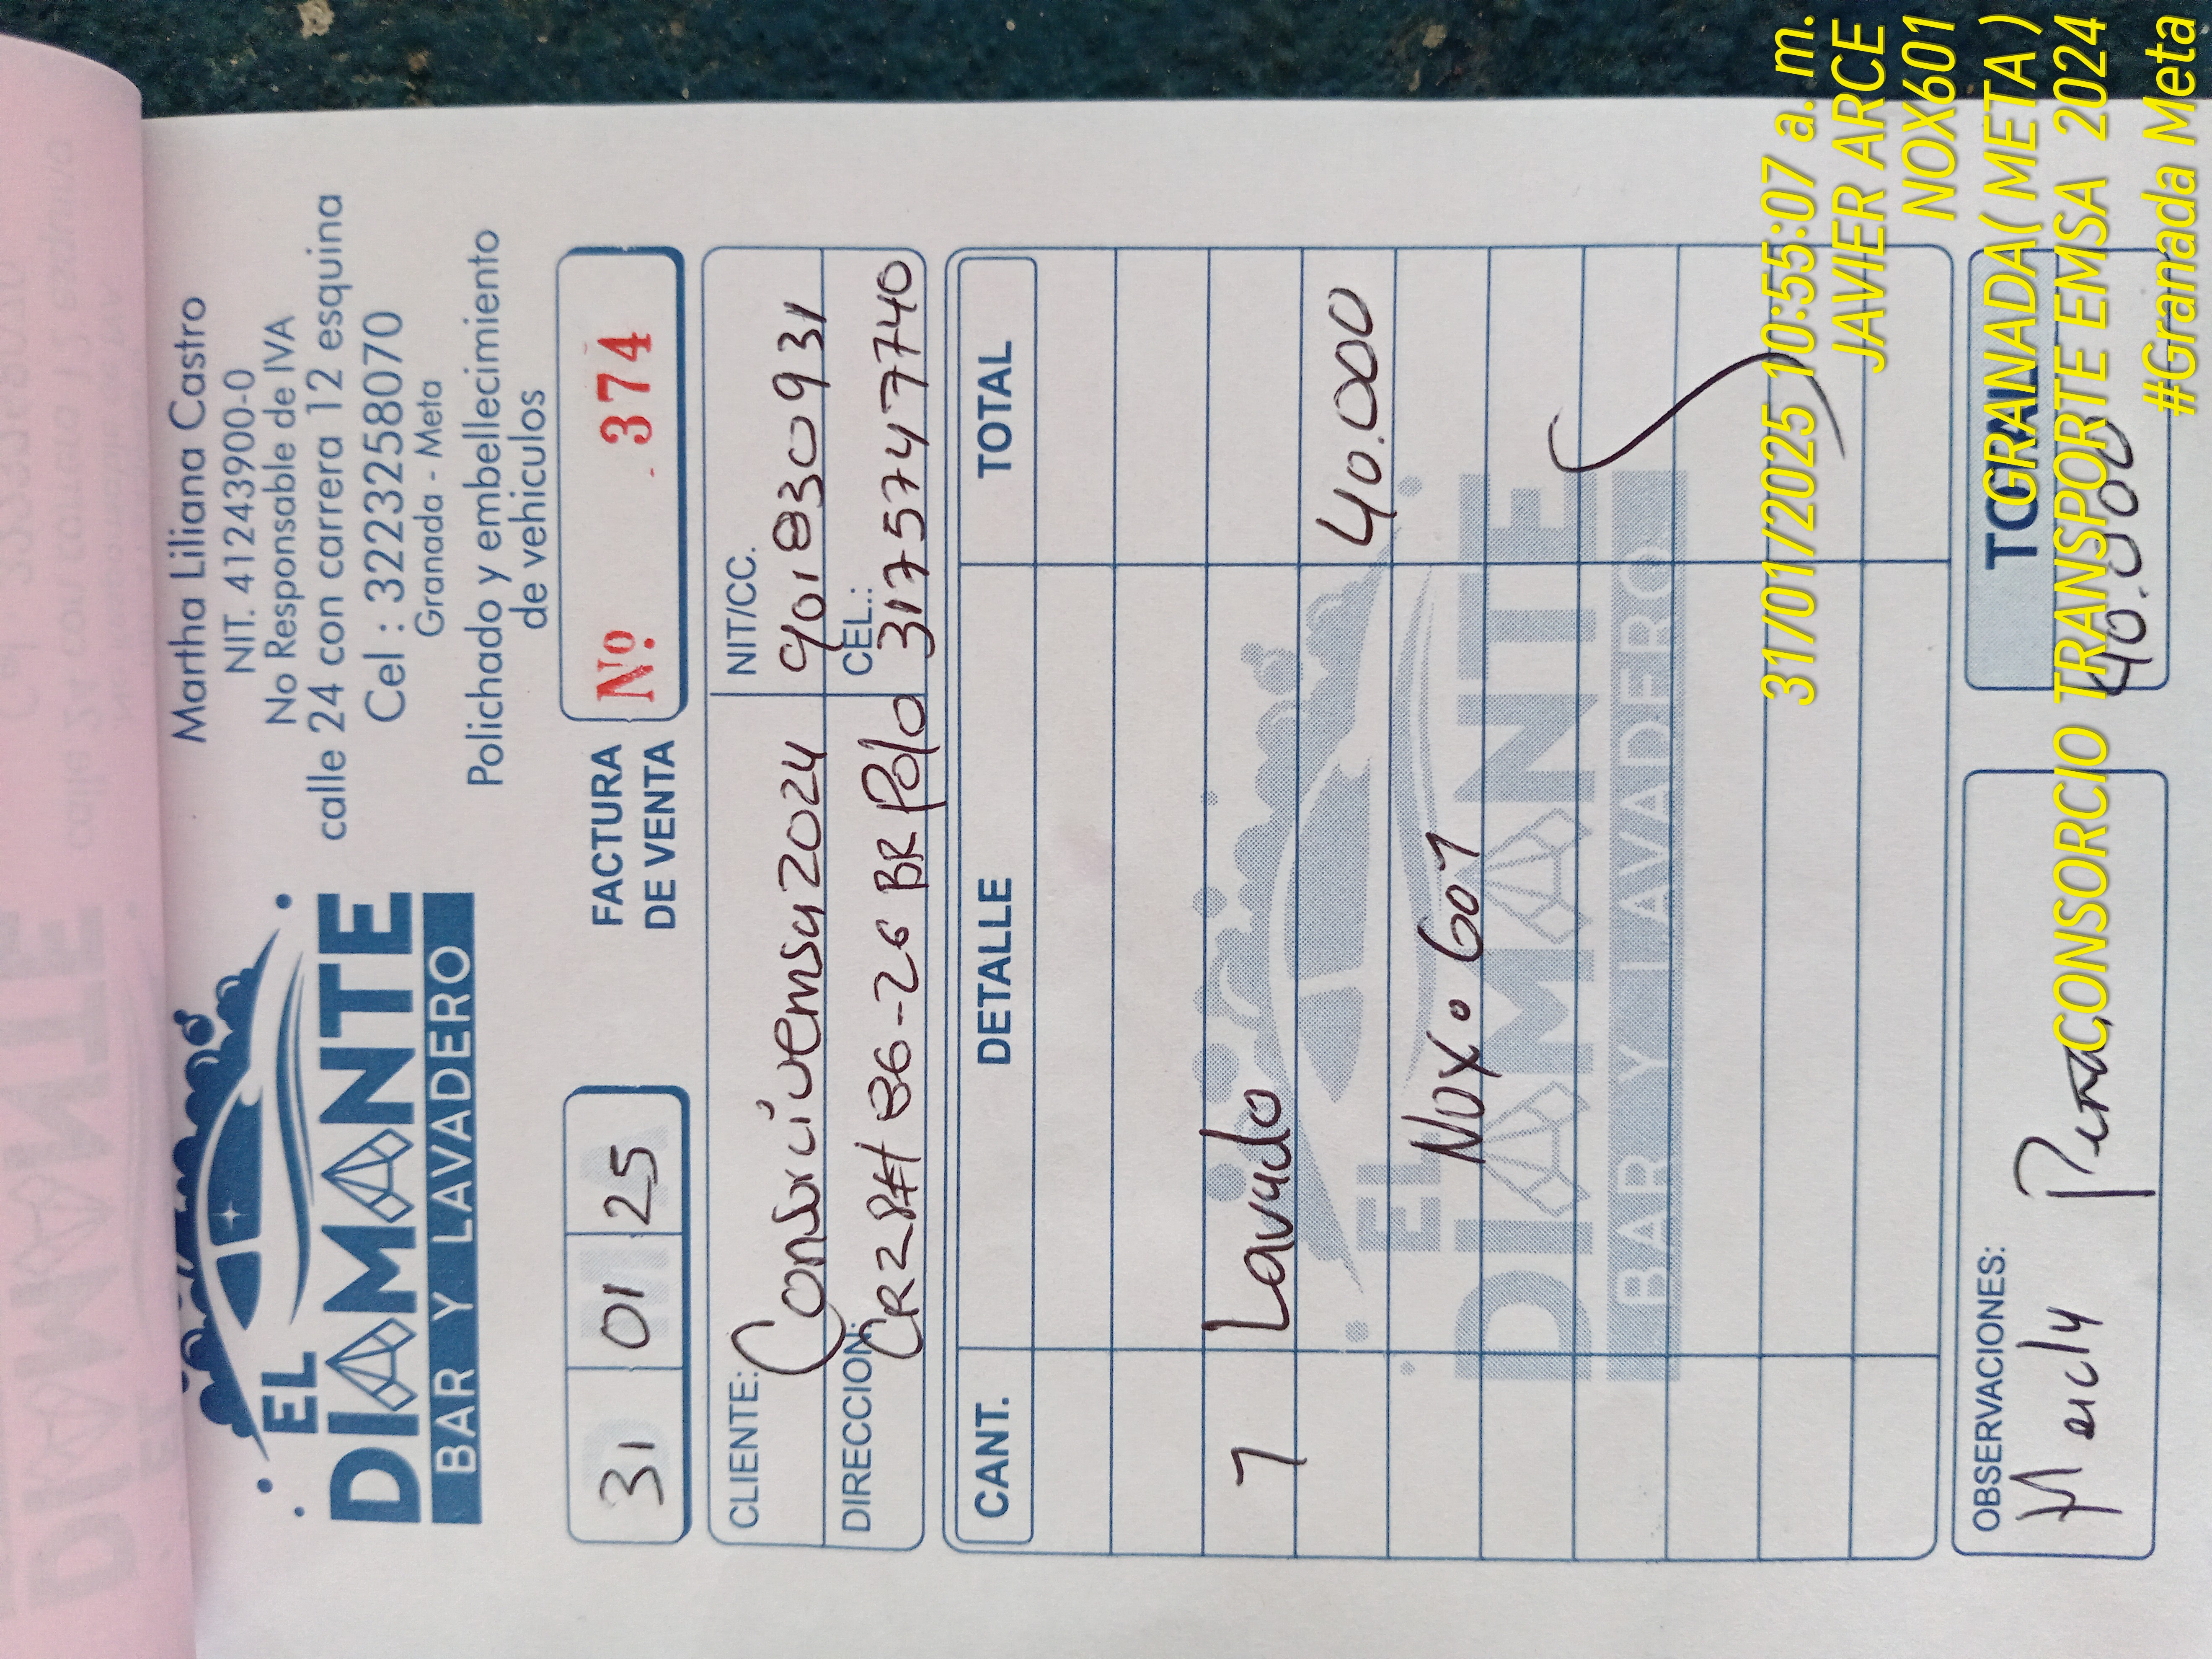 EL
DIAMANTE
BAR Y LAVADERO
Martha Liliana Castro
NIT. 41243900-0
No Responsable de IVA
calle 24 con carrera 12 esquina
Cel : 3223258070
Granada - Meta
Polichado y embellecimiento
de vehiculos
31 01 25
FACTURA
DE VENTA
Nº. 374
CLIENTE: Consorcivemsa2024
NIT/CC. 901830931
DIRECCION:
BR Polo
CEL.: 3175747740
CANT. DETALLE TOTAL
1 Lavado
40.000
NOX. 601
EL
DIAMANTE
BAR Y LAVADERO
OBSERVACIONES:
TOTAL
40.000
31/01/2025 10:55:07 a. m.
JAVIER ARCE
NOX601
GRANADA( META )
CONSORCIO TRANSPORTE EMSA 2024
#Granada Meta